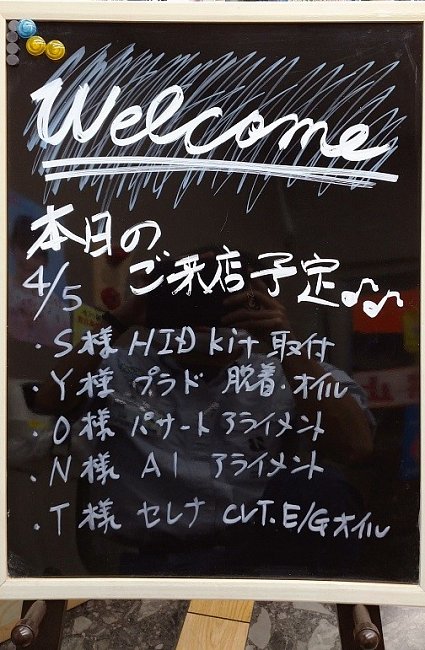 Welcome
本日の
4/5 ご来店予定♪♪
・S様 HID kit 取付
・Y様 プラド 脱着・オイル
・O様 パサート アライメント
・N様 A1 アライメント
・T様 セレナ CVT.E/Gオイル